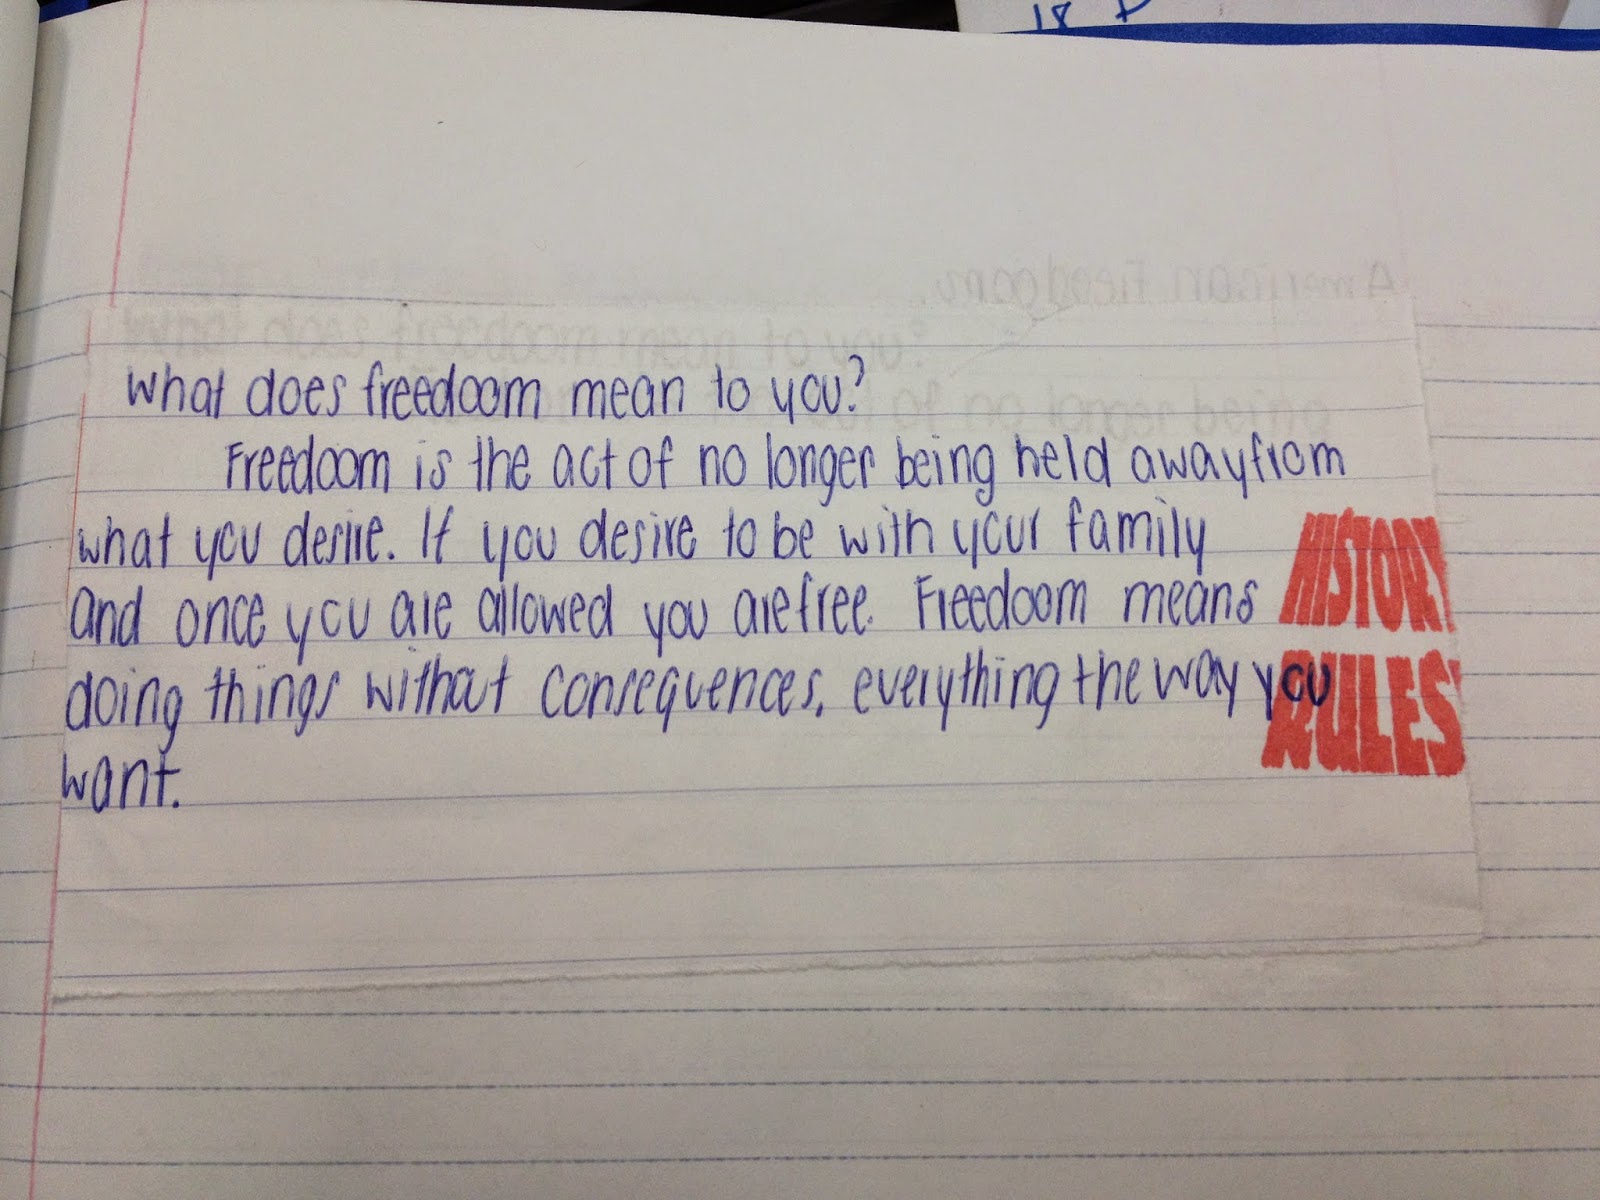 18
American Freedoom
What does freedoom mean to you?
Freedoom is the act of no longer being held away from
what you desire. If you desire to be with your family
and once you are allowed you are free. Freedoom means
doing things without consequences, everything the way you
want.
HISTORY
RULES